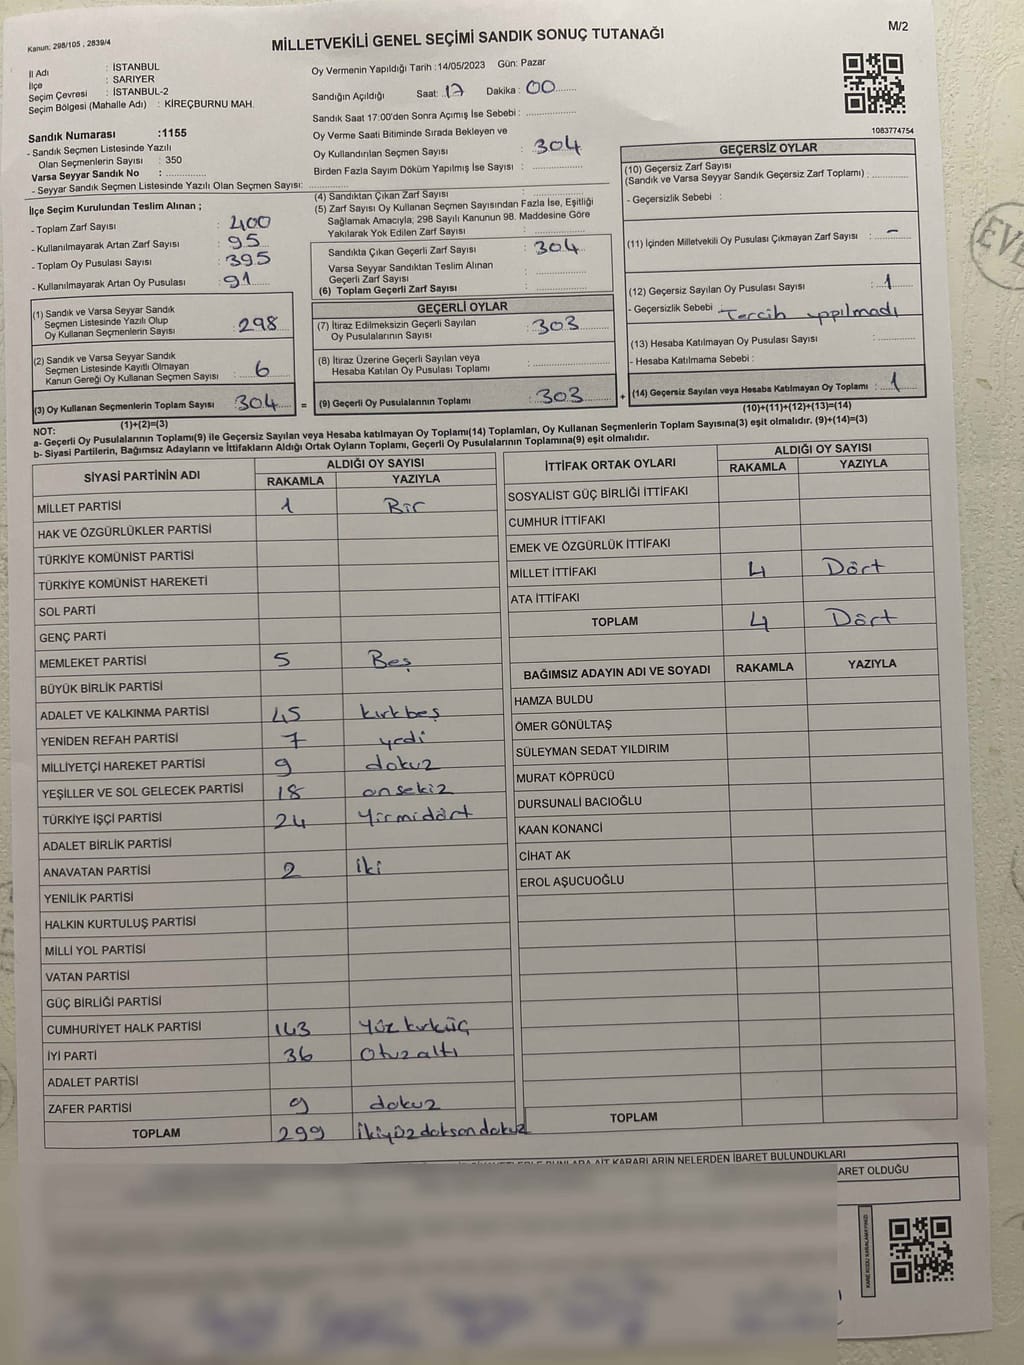 Kanun: 298/105 , 2839/4
M/2
MİLLETVEKİLİ GENEL SEÇİMİ SANDIK SONUÇ TUTANAĞI
İl Adı : İSTANBUL
İlçe : SARIYER
Seçim Çevresi : İSTANBUL-2
Seçim Bölgesi (Mahalle Adı) : KİREÇBURNU MAH.
Sandık Numarası :1155
- Sandık Seçmen Listesinde Yazılı
Olan Seçmenlerin Sayısı : 350
Varsa Seyyar Sandık No :
- Seyyar Sandık Seçmen Listesinde Yazılı Olan Seçmen Sayısı:
Oy Vermenin Yapıldığı Tarih :14/05/2023 Gün: Pazar
Sandığın Açıldığı Saat: 17 Dakika : 00
Sandık Saat 17:00'den Sonra Açımış İse Sebebi :
Oy Verme Saati Bitiminde Sırada Bekleyen ve
Oy Kullandırılan Seçmen Sayısı : 304
Birden Fazla Sayım Döküm Yapılmış İse Sayısı :
1083774754
İlçe Seçim Kurulundan Teslim Alınan ;
- Toplam Zarf Sayısı : 400
- Kullanılmayarak Artan Zarf Sayısı : 95
- Toplam Oy Pusulası Sayısı : 395
- Kullanılmayarak Artan Oy Pusulası : 91
(1) Sandık ve Varsa Seyyar Sandık
Seçmen Listesinde Yazılı Olup
Oy Kullanan Seçmenlerin Sayısı : 298
(2) Sandık ve Varsa Seyyar Sandık
Seçmen Listesinde Kayıtlı Olmayan
Kanun Gereği Oy Kullanan Seçmen Sayısı : 6
(3) Oy Kullanan Seçmenlerin Toplam Sayısı : 304
(1)+(2)=(3)
(4) Sandıktan Çıkan Zarf Sayısı :
(5) Zarf Sayısı Oy Kullanan Seçmen Sayısından Fazla İse, Eşitliği
Sağlamak Amacıyla, 298 Sayılı Kanunun 98. Maddesine Göre
Yakılarak Yok Edilen Zarf Sayısı :
Sandıkta Çıkan Geçerli Zarf Sayısı : 304
Varsa Seyyar Sandıktan Teslim Alınan
Geçerli Zarf Sayısı :
(6) Toplam Geçerli Zarf Sayısı :
GEÇERLİ OYLAR
(7) İtiraz Edilmeksizin Geçerli Sayılan
Oy Pusulalarının Sayısı : 303
(8) İtiraz Üzerine Geçerli Sayılan veya
Hesaba Katılan Oy Pusulası Toplamı :
= (9) Geçerli Oy Pusulalarının Toplamı : 303
GEÇERSİZ OYLAR
(10) Geçersiz Zarf Sayısı
(Sandık ve Varsa Seyyar Sandık Geçersiz Zarf Toplamı) :
- Geçersizlik Sebebi :
(11) İçinden Milletvekili Oy Pusulası Çıkmayan Zarf Sayısı : -
(12) Geçersiz Sayılan Oy Pusulası Sayısı : 1
- Geçersizlik Sebebi : Tercih yapılmadı
(13) Hesaba Katılmayan Oy Pusulası Sayısı :
- Hesaba Katılmama Sebebi :
+ (14) Geçersiz Sayılan veya Hesaba Katılmayan Oy Toplamı : 1
(10)+(11)+(12)+(13)=(14)
NOT:
a- Geçerli Oy Pusulalarının Toplamı(9) ile Geçersiz Sayılan veya Hesaba katılmayan Oy Toplamı(14) Toplamları, Oy Kullanan Seçmenlerin Toplam Sayısına(3) eşit olmalıdır. (9)+(14)=(3)
b- Siyasi Partilerin, Bağımsız Adayların ve İttifakların Aldığı Ortak Oyların Toplamı, Geçerli Oy Pusulalarının Toplamına(9) eşit olmalıdır.
SİYASİ PARTİNİN ADI ALDIĞI OY SAYISI
RAKAMLA YAZIYLA
MİLLET PARTİSİ 1 Bir
HAK VE ÖZGÜRLÜKLER PARTİSİ
TÜRKİYE KOMÜNİST PARTİSİ
TÜRKİYE KOMÜNİST HAREKETİ
SOL PARTİ
GENÇ PARTİ
MEMLEKET PARTİSİ 5 Beş
BÜYÜK BİRLİK PARTİSİ
ADALET VE KALKINMA PARTİSİ 45 kırkbeş
YENİDEN REFAH PARTİSİ 7 yedi
MİLLİYETÇİ HAREKET PARTİSİ 9 dokuz
YEŞİLLER VE SOL GELECEK PARTİSİ 18 onsekiz
TÜRKİYE İŞÇİ PARTİSİ 24 Yirmidört
ADALET BİRLİK PARTİSİ
ANAVATAN PARTİSİ 2 iki
YENİLİK PARTİSİ
HALKIN KURTULUŞ PARTİSİ
MİLLİ YOL PARTİSİ
VATAN PARTİSİ
GÜÇ BİRLİĞİ PARTİSİ
CUMHURİYET HALK PARTİSİ 143 Yüz kırküç
İYİ PARTİ 36 Otuzaltı
ADALET PARTİSİ
ZAFER PARTİSİ 9 dokuz
TOPLAM 299 ikiyüzdoksandokuz
İTTİFAK ORTAK OYLARI ALDIĞI OY SAYISI
RAKAMLA YAZIYLA
SOSYALİST GÜÇ BİRLİĞİ İTTİFAKI
CUMHUR İTTİFAKI
EMEK VE ÖZGÜRLÜK İTTİFAKI
MİLLET İTTİFAKI 4 Dört
ATA İTTİFAKI
TOPLAM 4 Dört
BAĞIMSIZ ADAYIN ADI VE SOYADI RAKAMLA YAZIYLA
HAMZA BULDU
ÖMER GÖNÜLTAŞ
SÜLEYMAN SEDAT YILDIRIM
MURAT KÖPRÜCÜ
DURSUNALİ BACIOĞLU
KAAN KONANCİ
CİHAT AK
EROL AŞUCUOĞLU
TOPLAM
AİT KARARLARIN NELERDEN İBARET BULUNDUKLARI
ARET OLDUĞU